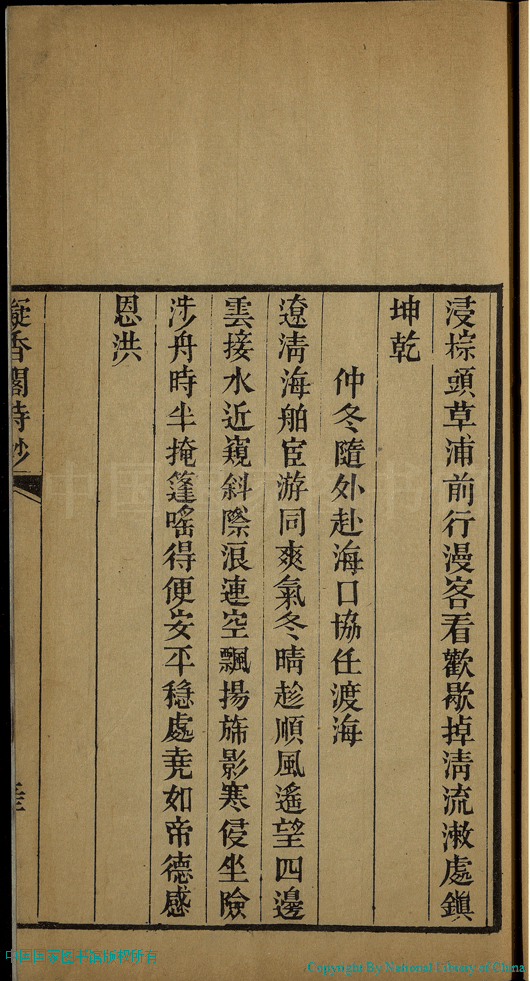 浸棕頭草浦前行漫客看歡歇掉清流漱處鎮
坤乾
仲冬隨外赴海口協任渡海
遼淸海舶宦游同爽氣冬晴趁順風遙望四邊
雲接水近窺斜際浪連空飄揚斾影寒侵坐險
涉舟時半掩篷唂得便安平穩處堯如帝德感
恩洪
凝香閣詩鈔
中国国家图书馆版权所有
Copyright By National Library of China